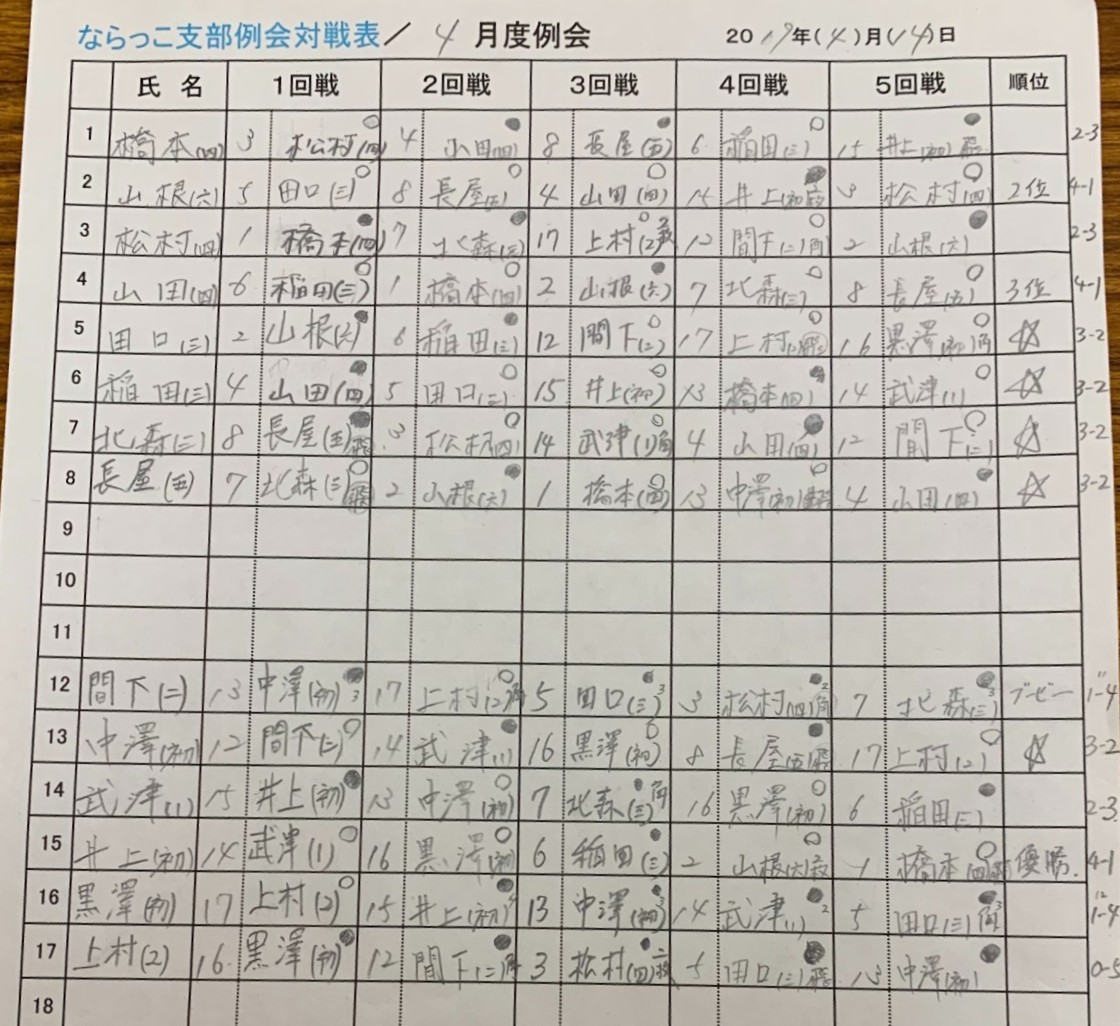 ならっこ支部例会対戦表/ 4 月度例会 2019年(4)月(14)日
氏名 1回戦 2回戦 3回戦 4回戦 5回戦 順位
1 橋本(四) 3 松村(四)○ 4 山田(四)● 8 長屋(五)● 6 稲田(三)○ 15 井上(初)● 2-3
2 山根(六) 5 田口(三)○ 8 長屋(五)○ 4 山田(四)○ 15 井上(初)● 3 松村(四)○ 2位 4-1
3 松村(四) 1 橋本(四)● 7 北森(三)● 17 上村(2)○ 12 間下(二)角○ 2 山根(六)● 2-3
4 山田(四) 6 稲田(三)○ 1 橋本(四)○ 2 山根(六)● 7 北森(三)○ 8 長屋(五)○ 3位 4-1
5 田口(三) 2 山根(六)● 6 稲田(三)● 12 間下(二)○ 17 上村○ 16 黒澤(初)角○ ☆ 3-2
6 稲田(三) 4 山田(四)● 5 田口(三)○ 15 井上(初)○ 13 橋本(四)● 14 武津(1)○ ☆ 3-2
7 北森(三) 8 長屋(五)● 3 松村(四)○ 14 武津(1)角○ 4 山田(四)● 12 間下(二)○ ☆ 3-2
8 長屋(五) 7 北森(三)○ 2 山根(六)● 1 橋本(四)○ 13 中澤(初)○ 4 山田(四)● ☆ 3-2
9
10
11
12 間下(二) 13 中澤(初)●3 17 上村(2)角○ 5 田口(三)●3 3 松村(四)角●2 7 北森(三)●3 ブービー 11 1-4
13 中澤(初) 12 間下(二)○ 14 武津(1)● 16 黒澤(初)○ 8 長屋(五)● 17 上村(2)○ ☆ 3-2
14 武津(1) 15 井上(初)● 13 中澤(初)○ 7 北森(三)角● 16 黒澤(初)○ 6 稲田(三)● 2-3
15 井上(初) 14 武津(1)○ 16 黒澤(初)○ 6 稲田(三)● 2 山根(六)○ 1 橋本(四)○ 優勝. 4-1
16 黒澤(初) 17 上村(2)○ 15 井上(初)●4 13 中澤(初)●3 14 武津(1)●2 5 田口(三)角●3 12 1-4
17 上村(2) 16. 黒澤(初)● 12 間下(二)角● 3 松村(四)● 5 田口(三)● 13 中澤(初)● 0-5
18